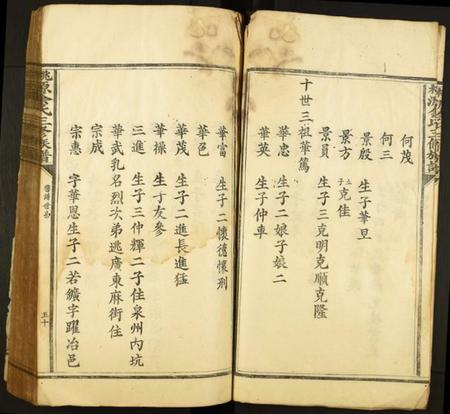 何茂
何三
景殷　生子華旦
景方　子克佳
景員　生子三克明克順克隆
十世三祖華篤
華忠　生子二娘子娘二
華英　生子仲車
華富　生子二懷德懷刑
華邑
華茂　生子二進長進猛
華操　生子友參
三進　生子三仲輝二子住泉州內坑
華武乳名烈次弟逃廣東麻街住
宗成
宗惠　字華恩生子二若鑛字躍冶邑
五十